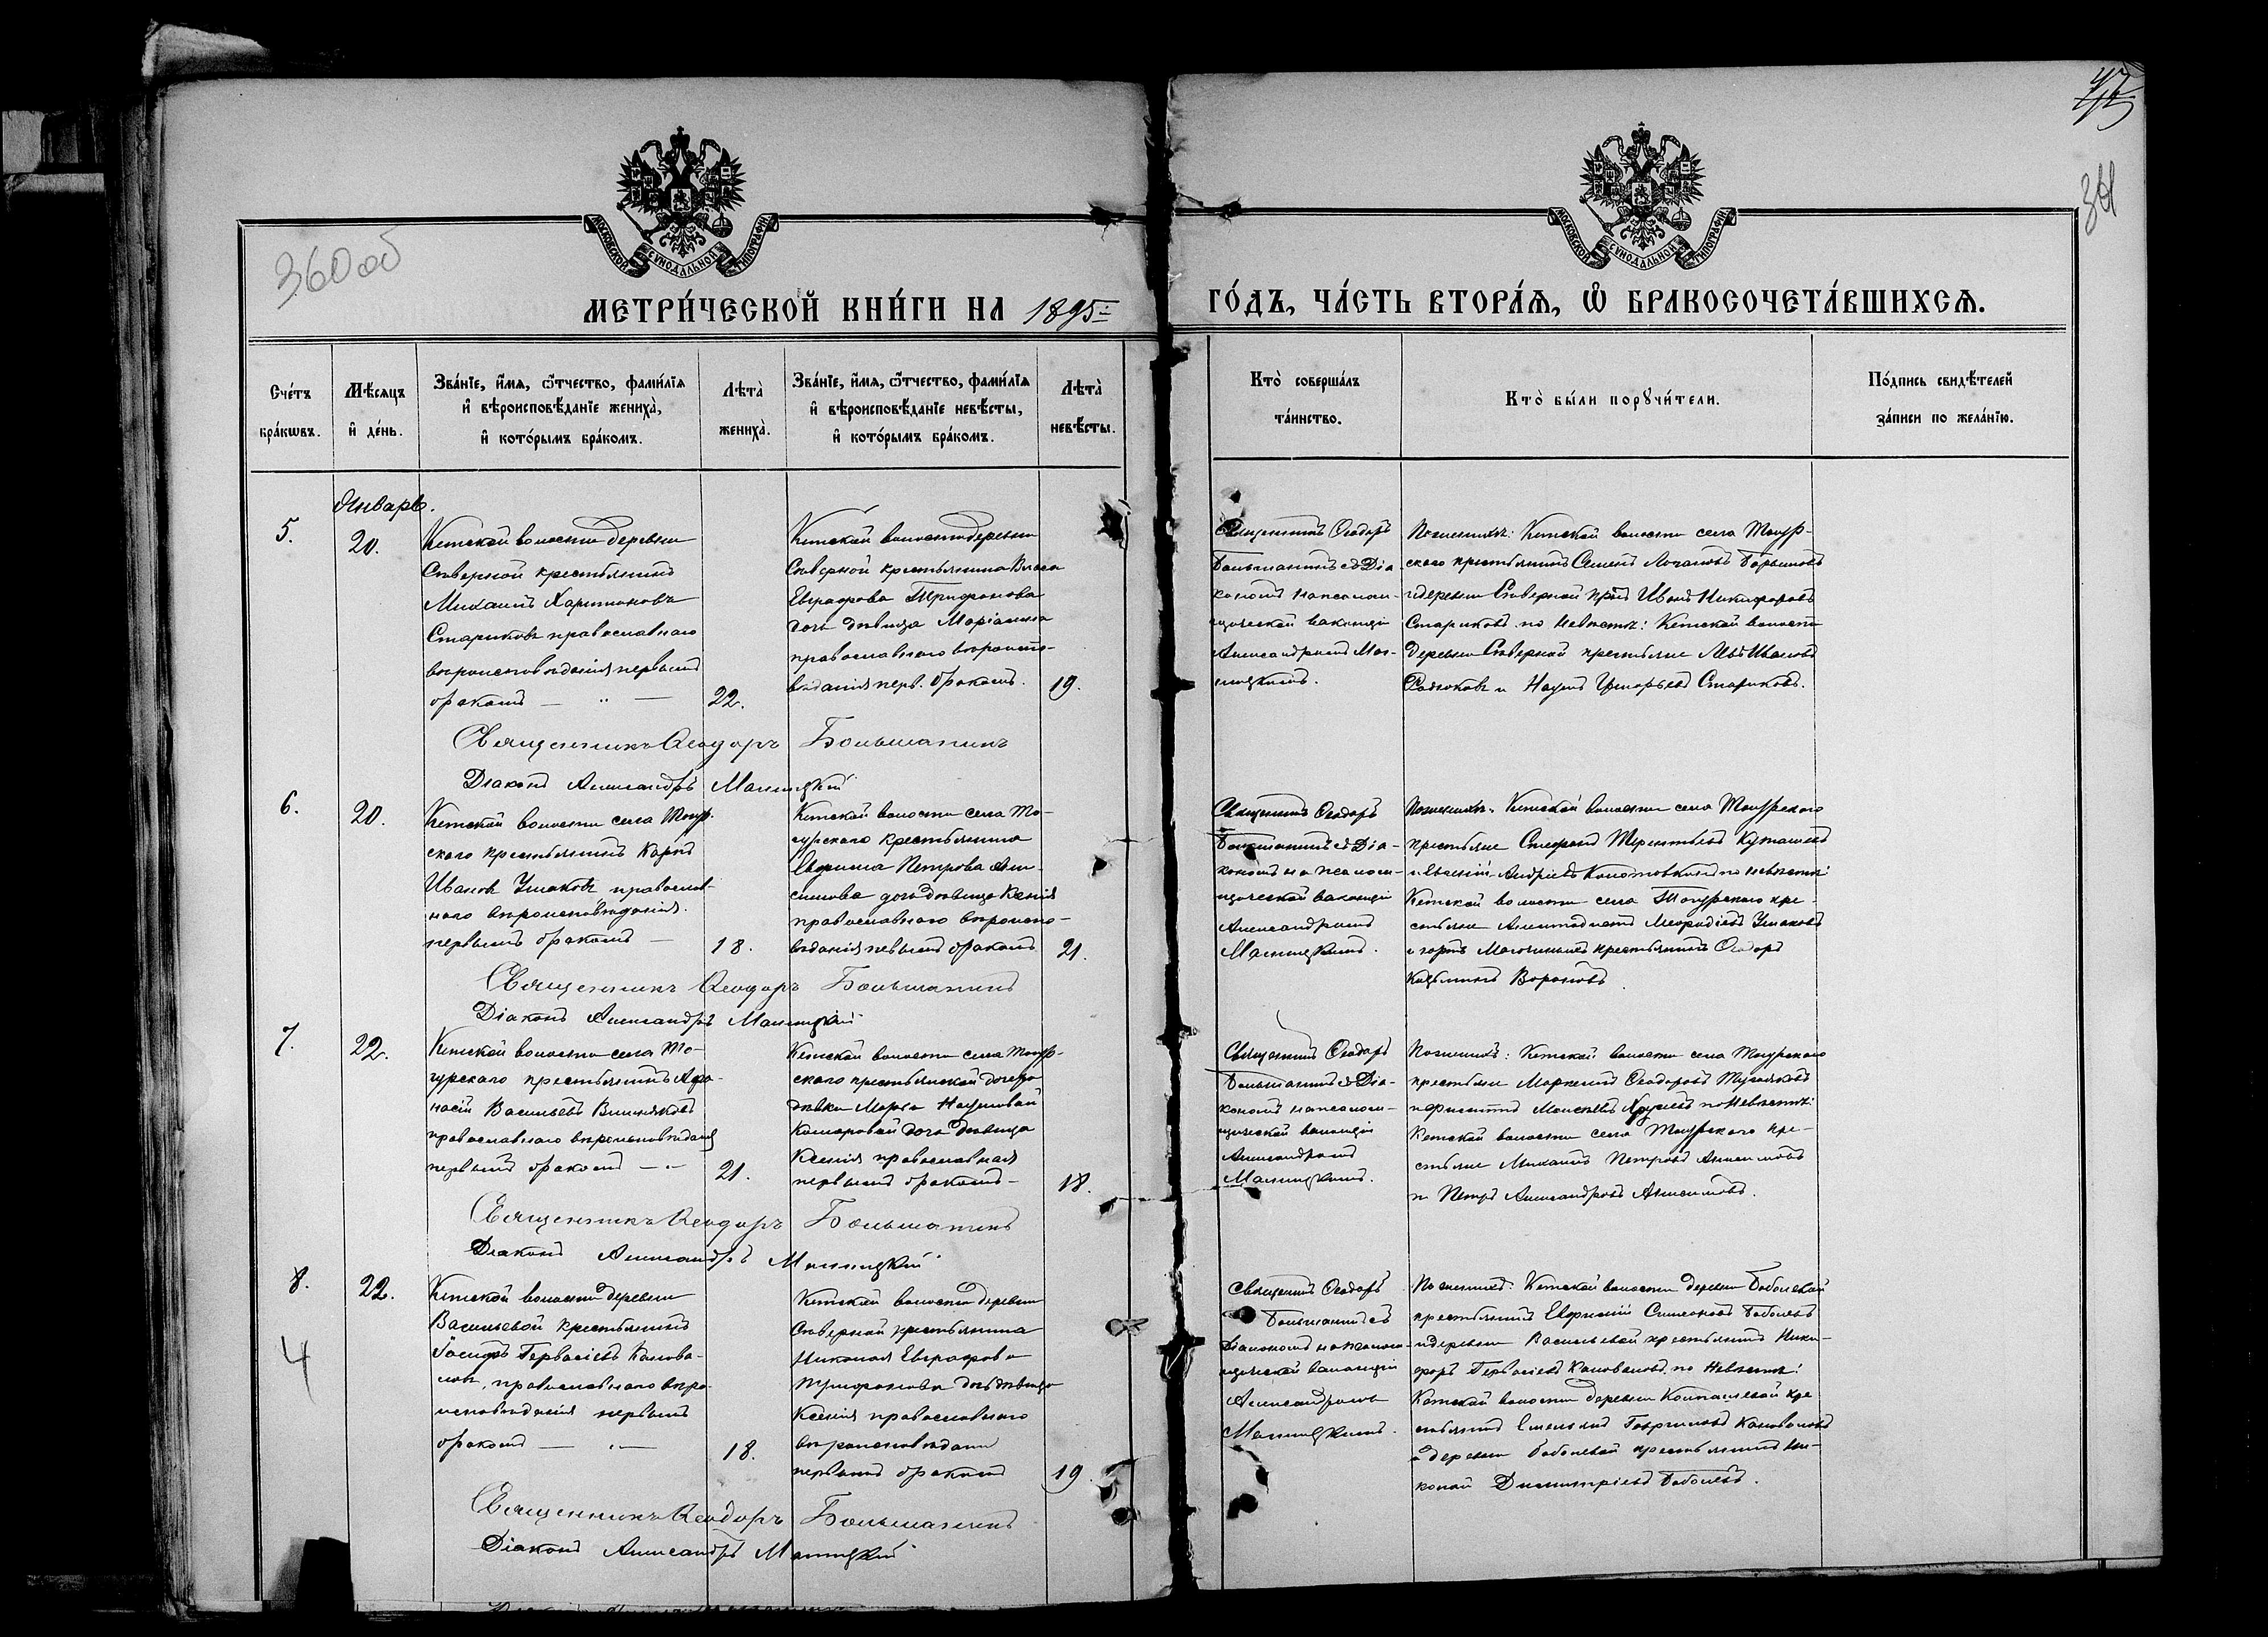 360 об
361
МОСКОВСКОЙ СѴНОДАЛЬНОЙ ТИПОГРАФІИ
МОСКОВСКОЙ СѴНОДАЛЬНОЙ ТИПОГРАФІИ
МЕТРИ́ЧЕСКОЙ КНИ́ГИ НА 1895
ГО́ДЪ, ЧА́СТЬ ВТОРА́Я, Ѿ БРАКОСОЧЕТА́ВШИХСЯ.
Сче́тъ бра́кѡвъ.
Мѣ́сяцъ и҆ де́нь.
Зва́нїе, и҆́мя, ѻ҆́тчество, фами́лїя
и҆ вѣроисповѣ́данїе жениха̀,
и҆ кото́рымъ бра́комъ.
Лѣта̀ жениха̀.
Зва́нїе, и҆́мя, ѻ҆́тчество, фами́лїя
и҆ вѣроисповѣ́данїе невѣ́сты,
и҆ кото́рымъ бра́комъ.
Лѣта̀ невѣ́сты.
Кто̀ соверша́лъ
та́инство.
Кто̀ бы́ли порꙋчи́тели.
По́дпись свидѣ́телей
за́писи по жела́нїю.
5.
Январь.
20.
Кетской волости деревни
Сѣверной крестьянинъ
Михаилъ Харитоновъ
Стариковъ православнаго
вѣроисповѣданія первымъ
бракомъ — " —
22.
Кетской волости деревни
Сѣверной крестьянина Власа
Евграфова Трифонова
дочь дѣвица Маріамна
православнаго вѣроиспо-
вѣданія перв. бракомъ.
19.
Священникъ Ѳеодоръ
Большанинъ съ Діа-
кономъ на псалом-
щической ваканціи
Александромъ Мал-
ицкимъ.
По женихѣ: Кетской волости села Тогур-
скаго крестьянинъ Семенъ Барышовъ
и деревни Сѣверной Иванъ Никифоровъ
Стариковъ по невѣстѣ: Кетской волости
деревни Сѣверной крестьяне Левъ Ивановъ
и Наумъ Григорьевъ Стариковъ.
Священникъ Ѳеодоръ Большанинъ
Діаконъ Александръ Малицкій
6.
20.
Кетской волости села Тогур-
скаго крестьянинъ Карпъ
Ивановъ Ушаковъ православ-
наго вѣроисповѣданія
первымъ бракомъ —
18.
Кетской волости села То-
гурскаго крестьянина
Ефима Петрова Ани-
симова дочь дѣвица Ксенія
православнаго вѣроиспо-
вѣданія певымъ бракомъ
21.
Священникъ Ѳеодоръ
Большанинъ съ Діа-
кономъ на псалом-
щической ваканціи
Александромъ
Малицкимъ.
По женихѣ: Кетской волости села Тогурскаго
крестьяне Стефанъ Терентьевъ
и Евсевій Андреевъ по невѣстѣ:
Кетской волости села Тогурскаго кре-
стьяне Меѳодіевъ Ушаковъ
и крестьянинъ Ѳеодоръ
Козьминъ Вороновъ
Священникъ Ѳеодоръ Большанинъ
Діаконъ Александръ Малицкій
7.
22.
Кетской волости села То-
гурскаго крестьянинъ Аѳа-
насій Васильевъ Вишняковъ
православнаго вѣроисповѣданія
первымъ бракомъ — " —
21.
Кетской волости села Тогур-
скаго крестьянской дочери
дѣвки Марѳы Наумовой
Комаровой дочь дѣвица
Ксенія православная
первымъ бракомъ —
18.
Священникъ Ѳеодоръ
Большанинъ съ Діа-
кономъ на псалом-
щической ваканціи
Александромъ
Малицкимъ.
По женихѣ: Кетской волости села Тогурскаго
крестьяне Маркелъ Ѳеодоровъ
и Филиппъ Моисеевъ по невѣстѣ:
Кетской волости села Тогурскаго кре-
стьяне Михаилъ Петровъ Анисимовъ
и Петръ Александровъ Анисимовъ.
Священникъ Ѳеодоръ Большанинъ
Діаконъ Александръ Малицкій
8.
22.
4
Кетской волости деревни
Васильевой крестьянинъ
Іосифъ Гервасіевъ Конова-
ловъ, православнаго вѣро-
исповѣданія первымъ
бракомъ — " —
18.
Кетской волости деревни
Сѣверной крестьянина
Николая Евграфова
Трифонова дочь дѣвица
Ксенія православнаго
вѣроисповѣданія
первымъ бракомъ
19
Священникъ Ѳеодоръ
Большанинъ съ
Діакономъ на псалом-
щической ваканціи
Александромъ
Малицкимъ.
По женихѣ: Кетской волости деревни Баболевой
крестьянинъ Евфимій Симеоновъ Баболевъ
и деревни Васильевой крестьянинъ Ники-
форъ Гервасіевъ Коноваловъ, по невѣстѣ:
Кетской волости деревни Колпашевой кре-
стьянинъ Емельянъ Гавриловъ Коноваловъ
и деревни Баболевой крестьянинъ Ни-
колай Димитріевъ Баболевъ.
Священникъ Ѳеодоръ Большанинъ
Діаконъ Александръ Малицкій